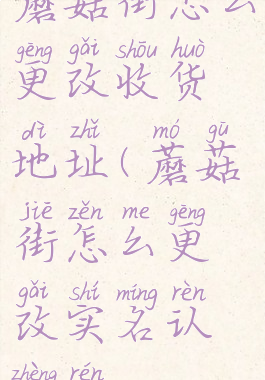 蘑菇街怎么
gēng gǎi shōu huò
更改收货
dì zhǐ mó gū
地址(蘑菇
jiē zěn me gēng
街怎么更
gǎi shí míng rèn
改实名认
zhèng rén